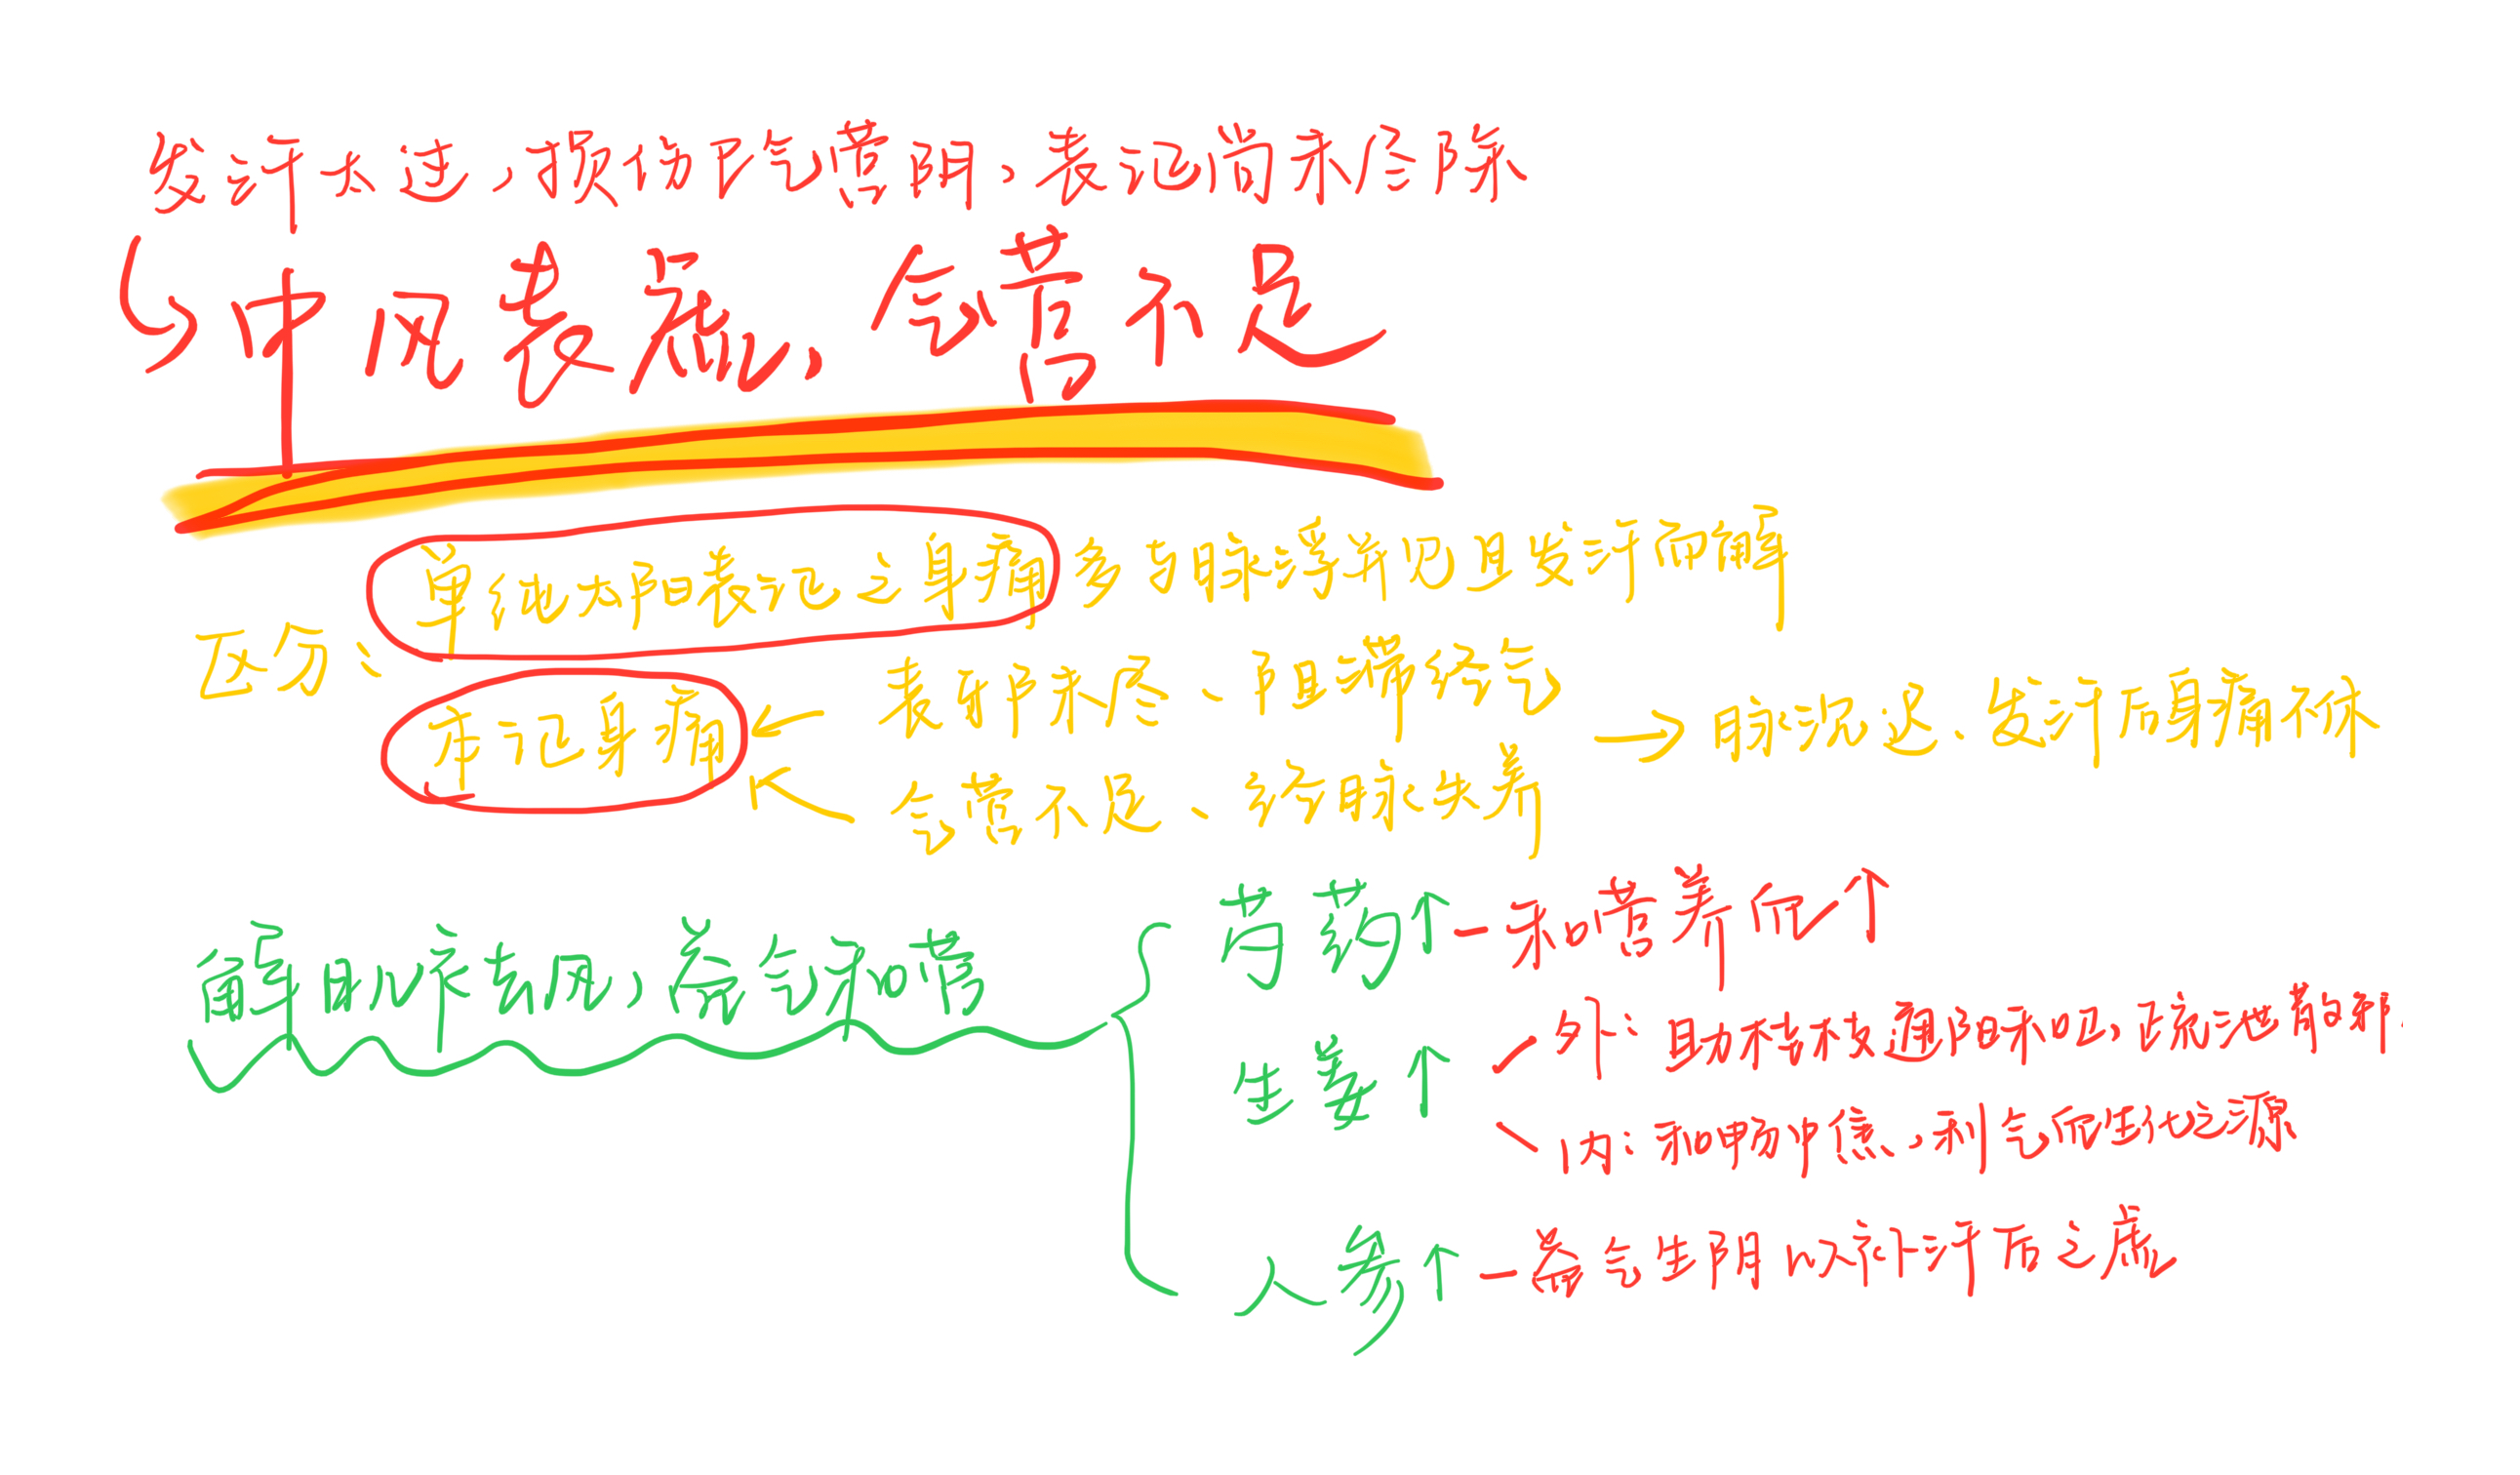 发汗太过,损伤阳气营阴、表记尚未全除
中风表虚、气营不足
区分:
单纯太阳表记之身痛多与脉浮并见且发汗而解
本记身痛 ← 表邪未尽、阻滞经气
← 气营不足、经脉失养
→ 脉沉迟、发汗后身痛不休
解肌祛风,益气和营
芍药↑ - 和营养血↑
生姜↑
外:助桂枝通阳
内:和畅中焦、利气血生化之源
人参↑ - 益气生阴以补汗后之虚